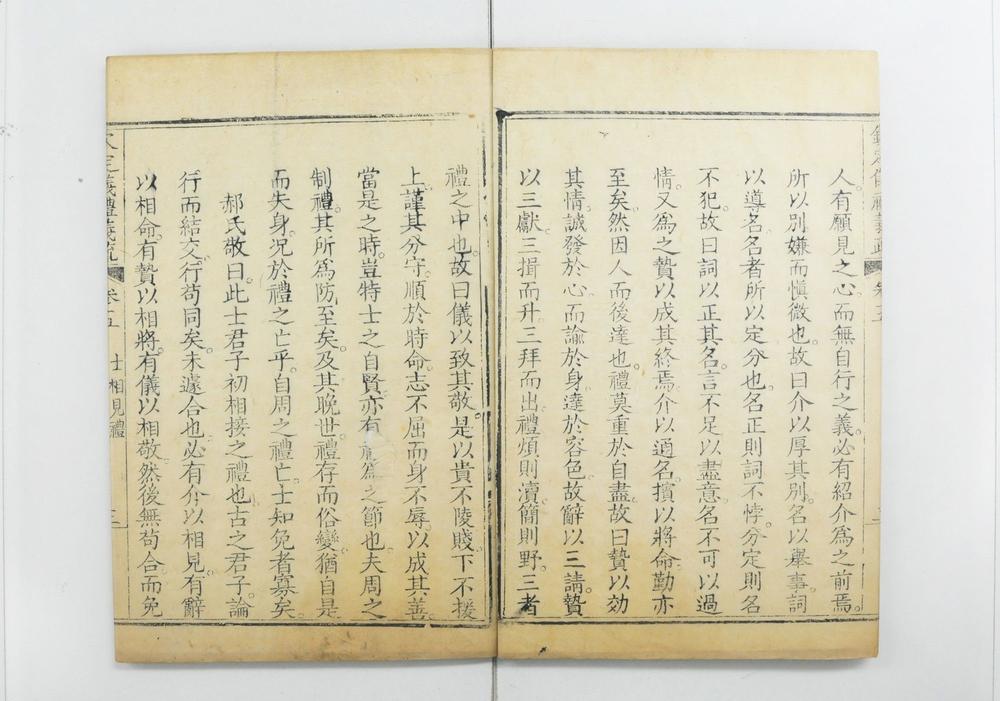 欽定儀禮義疏 卷五
人有願見之心而無自行之義必有紹介為之前焉
所以別嫌而慎微也故曰介以厚其別名以舉事詞
以導名名者所以定分也名正則詞不悖分定則名
不犯故曰詞以正其名言不足以盡意名不可以過
情又為之贄以成其終焉介以通名擯以將命勤亦
至矣然因人而後達也禮莫重於自盡故曰贄以効
其情誠發於心而諭於身達於容色故辭以三請贄
以三獻三揖而升三拜而出禮煩則瀆簡則野三者
禮之中也故曰儀以致其敬是以貴不陵賤下不援
上謹其分守順於時命志不屈而身不辱以成其善
當是之時豈特士之自賢亦有為之節也夫周之
制禮其所為防至矣及其晚世禮存而俗變猶自是
而失身況於禮之亡乎自周之禮亡士知免者寡矣
郝氏敬曰此士君子初相接之禮也古之君子論
行而結交行苟同矣未遽合也必有介以相見有辭
以相命有贄以相將有儀以相敬然後無苟合而免
欽定儀禮義疏 卷五 士相見禮 三